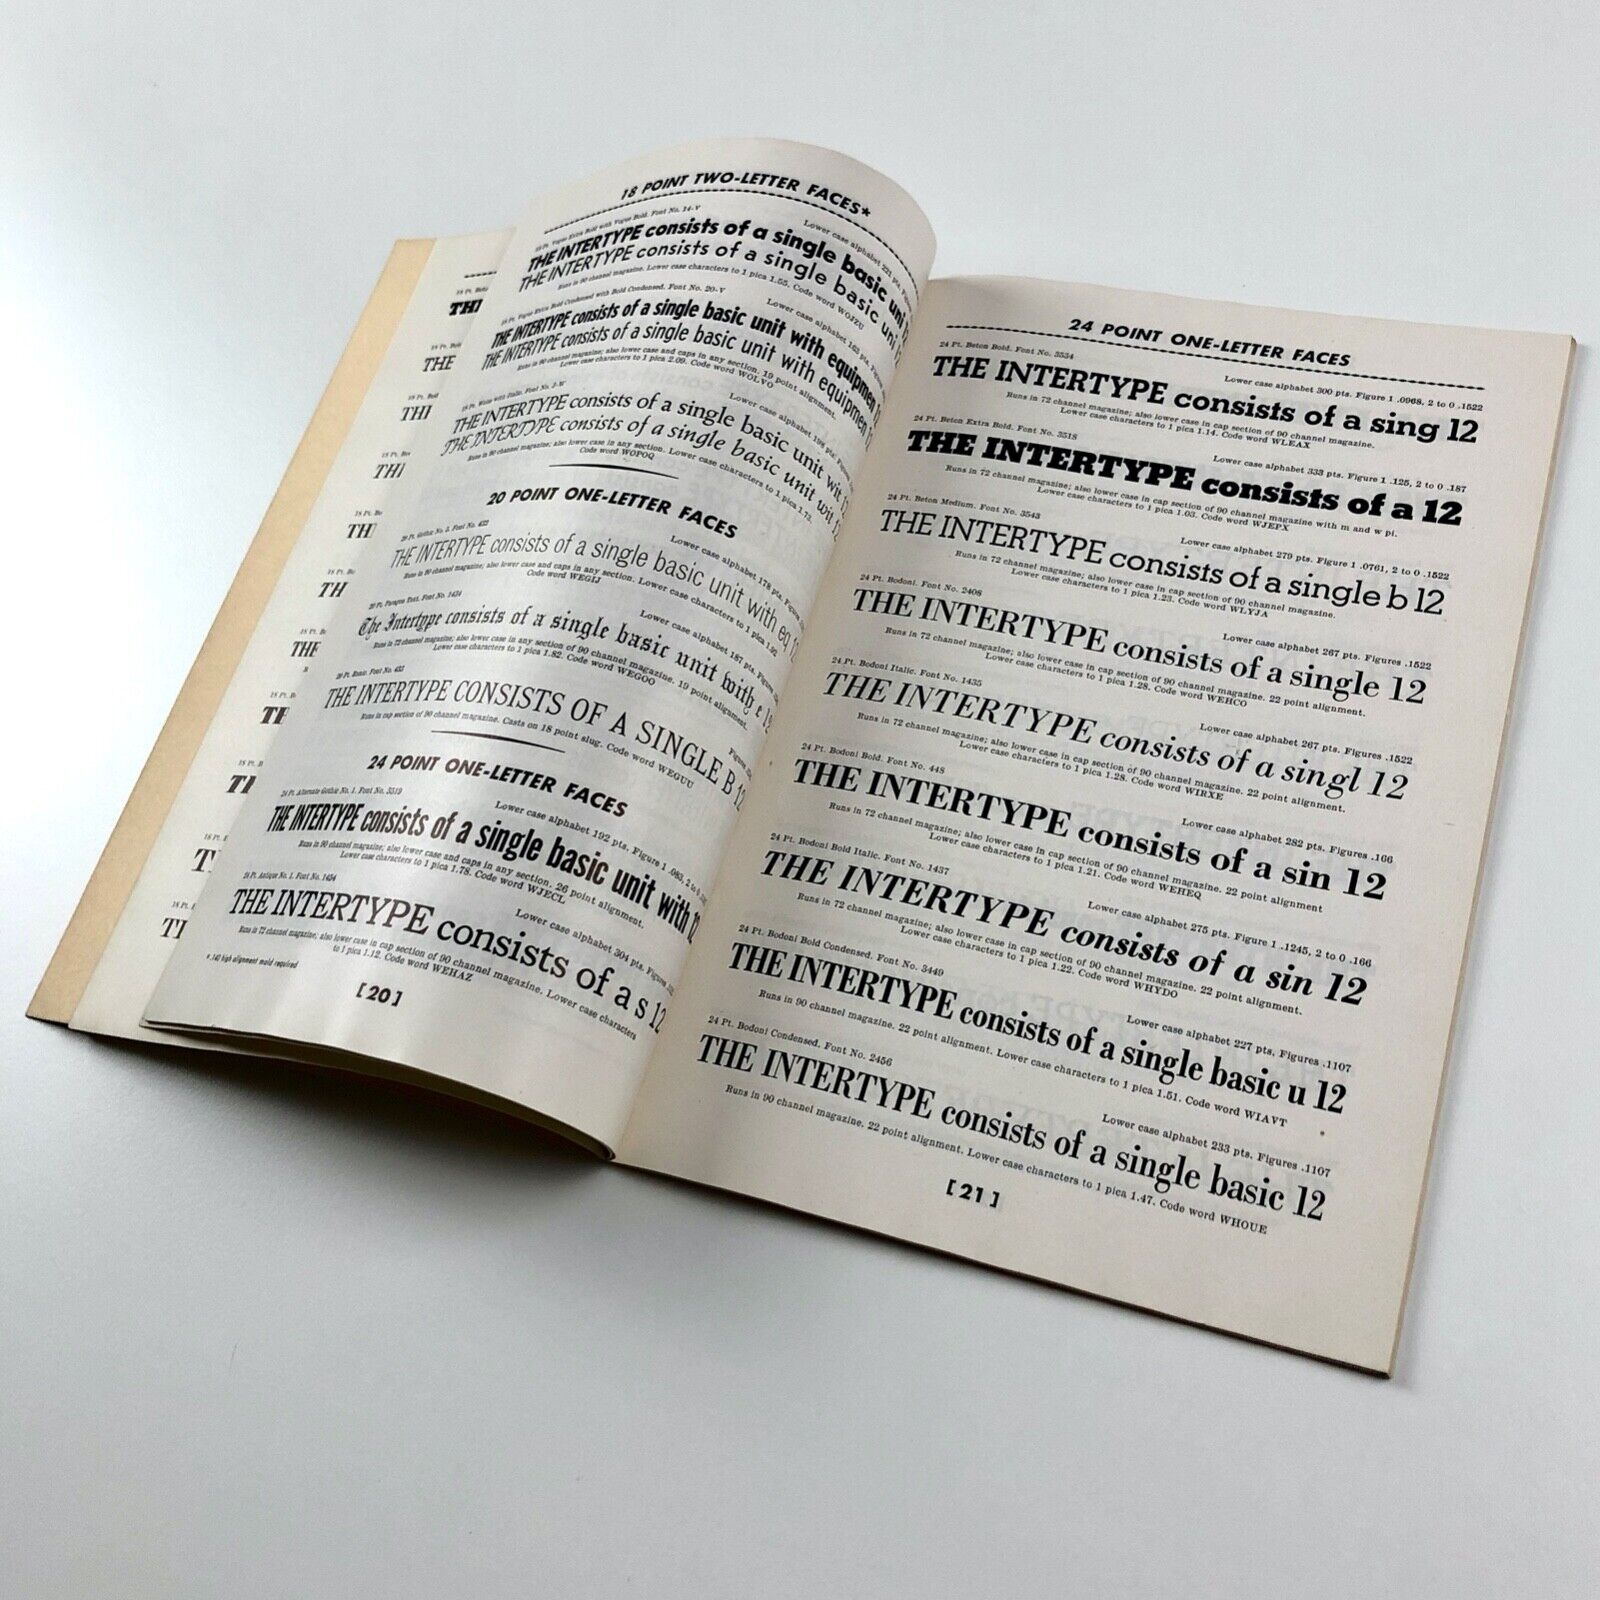 18 POINT TWO-LETTER FACES*
18 Pt. Vogue Extra Bold with Vogue Bold. Font No. 14-V
Lower case alphabet 221 pts.
THE INTERTYPE consists of a single basic uni
THE INTERTYPE consists of a single basic uni
Runs in 90 channel magazine. Lower case characters to 1 pica 1.55. Code word WOJZU
18 Pt. Vogue Extra Bold Condensed with Bold Condensed. Font No. 20-V
Lower case alphabet 163 pts.
THE INTERTYPE consists of a single basic unit with equipmen
THE INTERTYPE consists of a single basic unit with equipmen
Runs in 90 channel magazine; also lower case and caps in any section. 19 point alignment.
Lower case characters to 1 pica 2.09. Code word WOLVO
18 Pt. with Italic. Font No.
Lower case alphabet 198 pts.
THE INTERTYPE consists of a single basic unit wit
THE INTERTYPE consists of a single basic unit wit
Runs in 90 channel magazine; also lower case in any section. Lower case characters to 1 pica 1.73.
Code word WOPOQ
20 POINT ONE-LETTER FACES
20 Pt. Gothic No. 2. Font No. 422
Lower case alphabet 178 pts.
THE INTERTYPE consists of a single basic unit with eq 12
Runs in 90 channel magazine; also lower case and caps in any section. Lower case characters to 1 pica 1.92
Code word WEGIJ
20 Pt. Paragon Text. Font No. 1424
Lower case alphabet 187 pts.
The Intertype consists of a single basic unit with e 12
Runs in 72 channel magazine; also lower case in any section of 90 channel magazine. 19 point alignment.
Lower case characters to 1 pica 1.82. Code word WEGOO
20 Pt. Font No. 422
THE INTERTYPE CONSISTS OF A SINGLE B 12
Runs in cap section of 90 channel magazine. Casts on 18 point slug. Code word WEGUU
24 POINT ONE-LETTER FACES
24 Pt. Alternate Gothic No. 1. Font No. 3519
Lower case alphabet 192 pts. Figure 1 .083, 2 to 0
THE INTERTYPE consists of a single basic unit with 12
Runs in 90 channel magazine; also lower case and caps in any section. 26 point alignment.
Lower case characters to 1 pica 1.78. Code word WJECL
24 Pt. Antique No. 1. Font No. 1434
Lower case alphabet 304 pts.
THE INTERTYPE consists of a s 12
Runs in 72 channel magazine; also lower case in cap section of 90 channel magazine. Lower case characters
to 1 pica 1.12. Code word WEHAZ
*.142 high alignment mold required
[20]
24 POINT ONE-LETTER FACES
24 Pt. Beton Bold. Font No. 3534
Lower case alphabet 300 pts. Figure 1 .0968, 2 to 0 .1522
THE INTERTYPE consists of a sing 12
Runs in 72 channel magazine; also lower case in cap section of 90 channel magazine.
Lower case characters to 1 pica 1.14. Code word WLEAX
24 Pt. Beton Extra Bold. Font No. 3518
Lower case alphabet 333 pts. Figure 1 .125, 2 to 0 .187
THE INTERTYPE consists of a 12
Runs in 72 channel magazine; also lower case in cap section of 90 channel magazine with m and w pi.
Lower case characters to 1 pica 1.03. Code word WJEPX
24 Pt. Beton Medium. Font No. 3543
Lower case alphabet 279 pts. Figure 1 .0761, 2 to 0 .1522
THE INTERTYPE consists of a single b 12
Runs in 72 channel magazine; also lower case in cap section of 90 channel magazine.
Lower case characters to 1 pica 1.23. Code word WLYJA
24 Pt. Bodoni. Font No. 2408
Lower case alphabet 267 pts. Figures .1522
THE INTERTYPE consists of a single 12
Runs in 72 channel magazine; also lower case in cap section of 90 channel magazine. 22 point alignment.
Lower case characters to 1 pica 1.28. Code word WEHCO
24 Pt. Bodoni Italic. Font No. 1435
Lower case alphabet 267 pts. Figures .1522
THE INTERTYPE consists of a singl 12
Runs in 72 channel magazine; also lower case in cap section of 90 channel magazine. 22 point alignment.
Lower case characters to 1 pica 1.28. Code word WIRXE
24 Pt. Bodoni Bold. Font No. 448
Lower case alphabet 282 pts. Figures .166
THE INTERTYPE consists of a sin 12
Runs in 72 channel magazine; also lower case in cap section of 90 channel magazine. 22 point alignment
Lower case characters to 1 pica 1.21. Code word WEHEQ
24 Pt. Bodoni Bold Italic. Font No. 1437
Lower case alphabet 275 pts. Figure 1 .1245, 2 to 0 .166
THE INTERTYPE consists of a sin 12
Runs in 72 channel magazine; also lower case in cap section of 90 channel magazine. 22 point alignment.
Lower case characters to 1 pica 1.22. Code word WHYDO
24 Pt. Bodoni Bold Condensed. Font No. 3449
Lower case alphabet 227 pts. Figures .1107
THE INTERTYPE consists of a single basic u 12
Runs in 90 channel magazine. 22 point alignment. Lower case characters to 1 pica 1.51. Code word WIAVT
24 Pt. Bodoni Condensed. Font No. 2456
Lower case alphabet 233 pts. Figures .1107
THE INTERTYPE consists of a single basic 12
Runs in 90 channel magazine. 22 point alignment. Lower case characters to 1 pica 1.47. Code word WHOUE
[21]